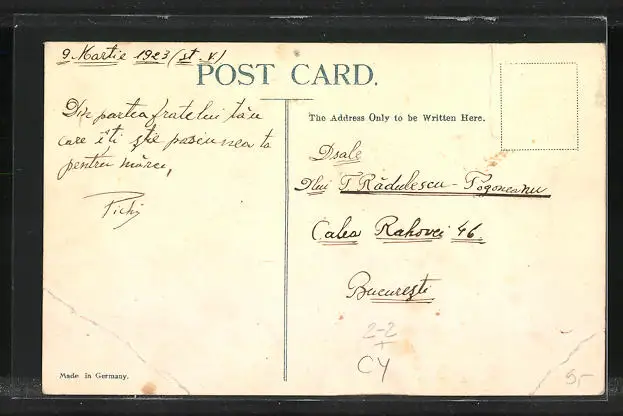 9 Martie 1923 (st. v.)
POST CARD.
Din partea fratelui tău
care îți știe pasiunea ta
pentru mărci,
The Address Only to be Written Here.
Dsale
Dlui T. Rădulescu - Pogoneanu
Calea Rahovei 46.
București
2-2
+
CY
Made in Germany.
5,-